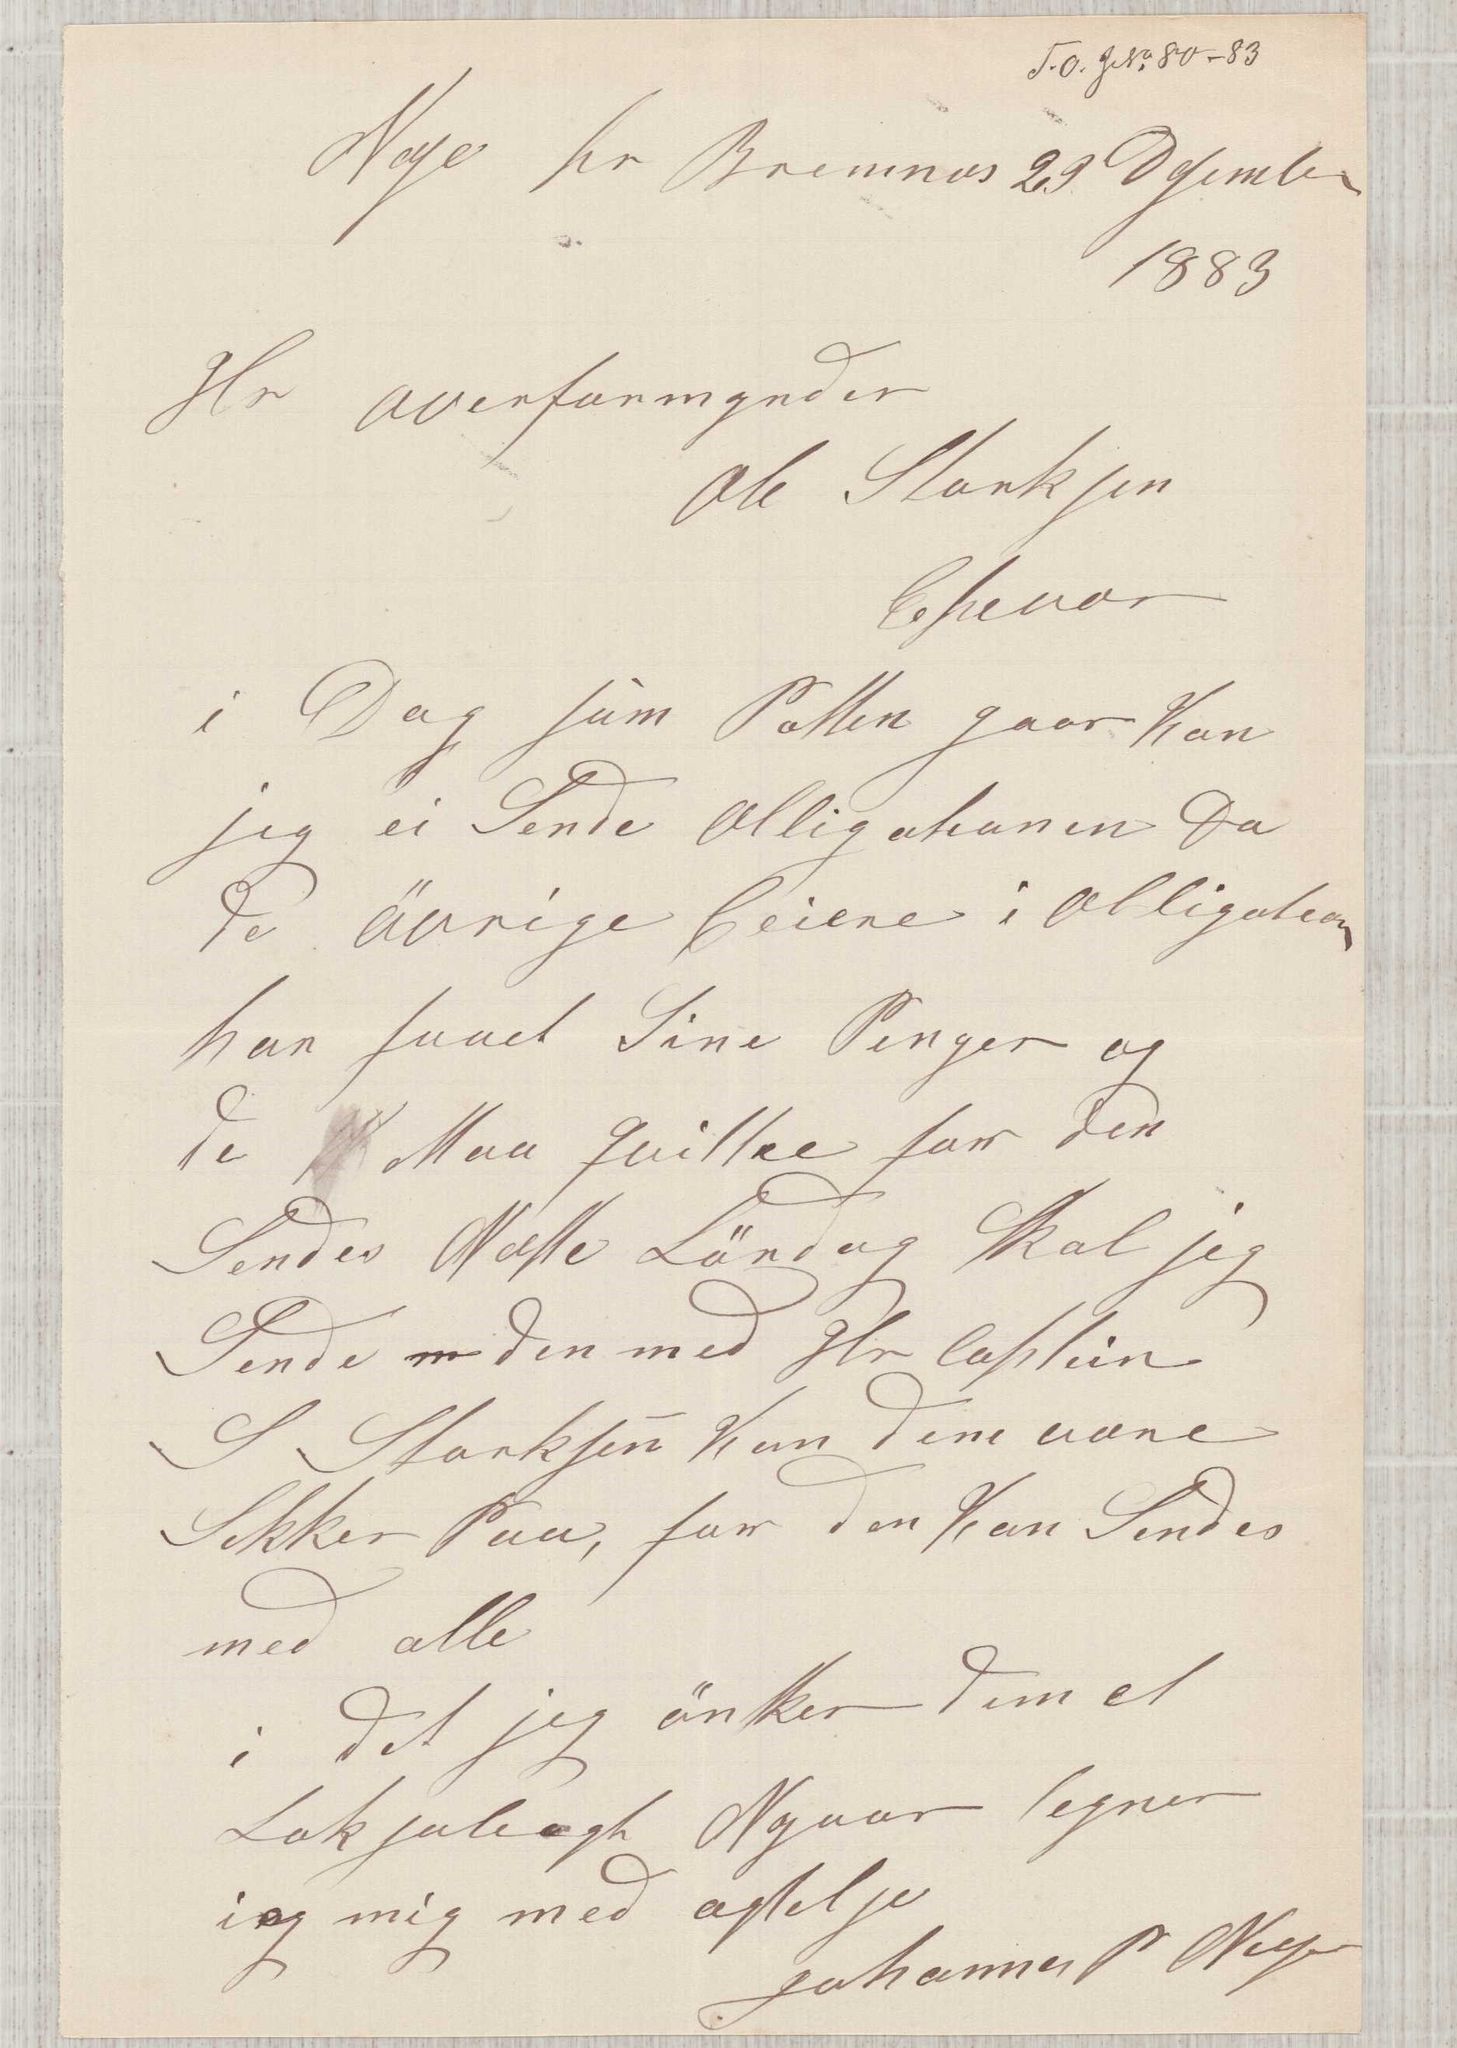 F.O. JNo. 80-83
Nese pr Bremnes 29 Desember
1883
Hr overformynder
Ole Storksen
Espevær
i Dag sum Posten gaar Kan
jeg ei Sende Obligationen Da
de övrige Eeiere i Obligation
har faaet Sine Penger og
de Maa qvittee for den
Sendes Næste Löndag Skal jeg
Sende den med Hr Captein
S Storksen Kan dem være
Sikker Paa, for den Kan Sendes
med alle
i det jeg önsker dem et
Löksaleegt Nyaar tegner
jeg mig med agtelse
Johannes P Nese